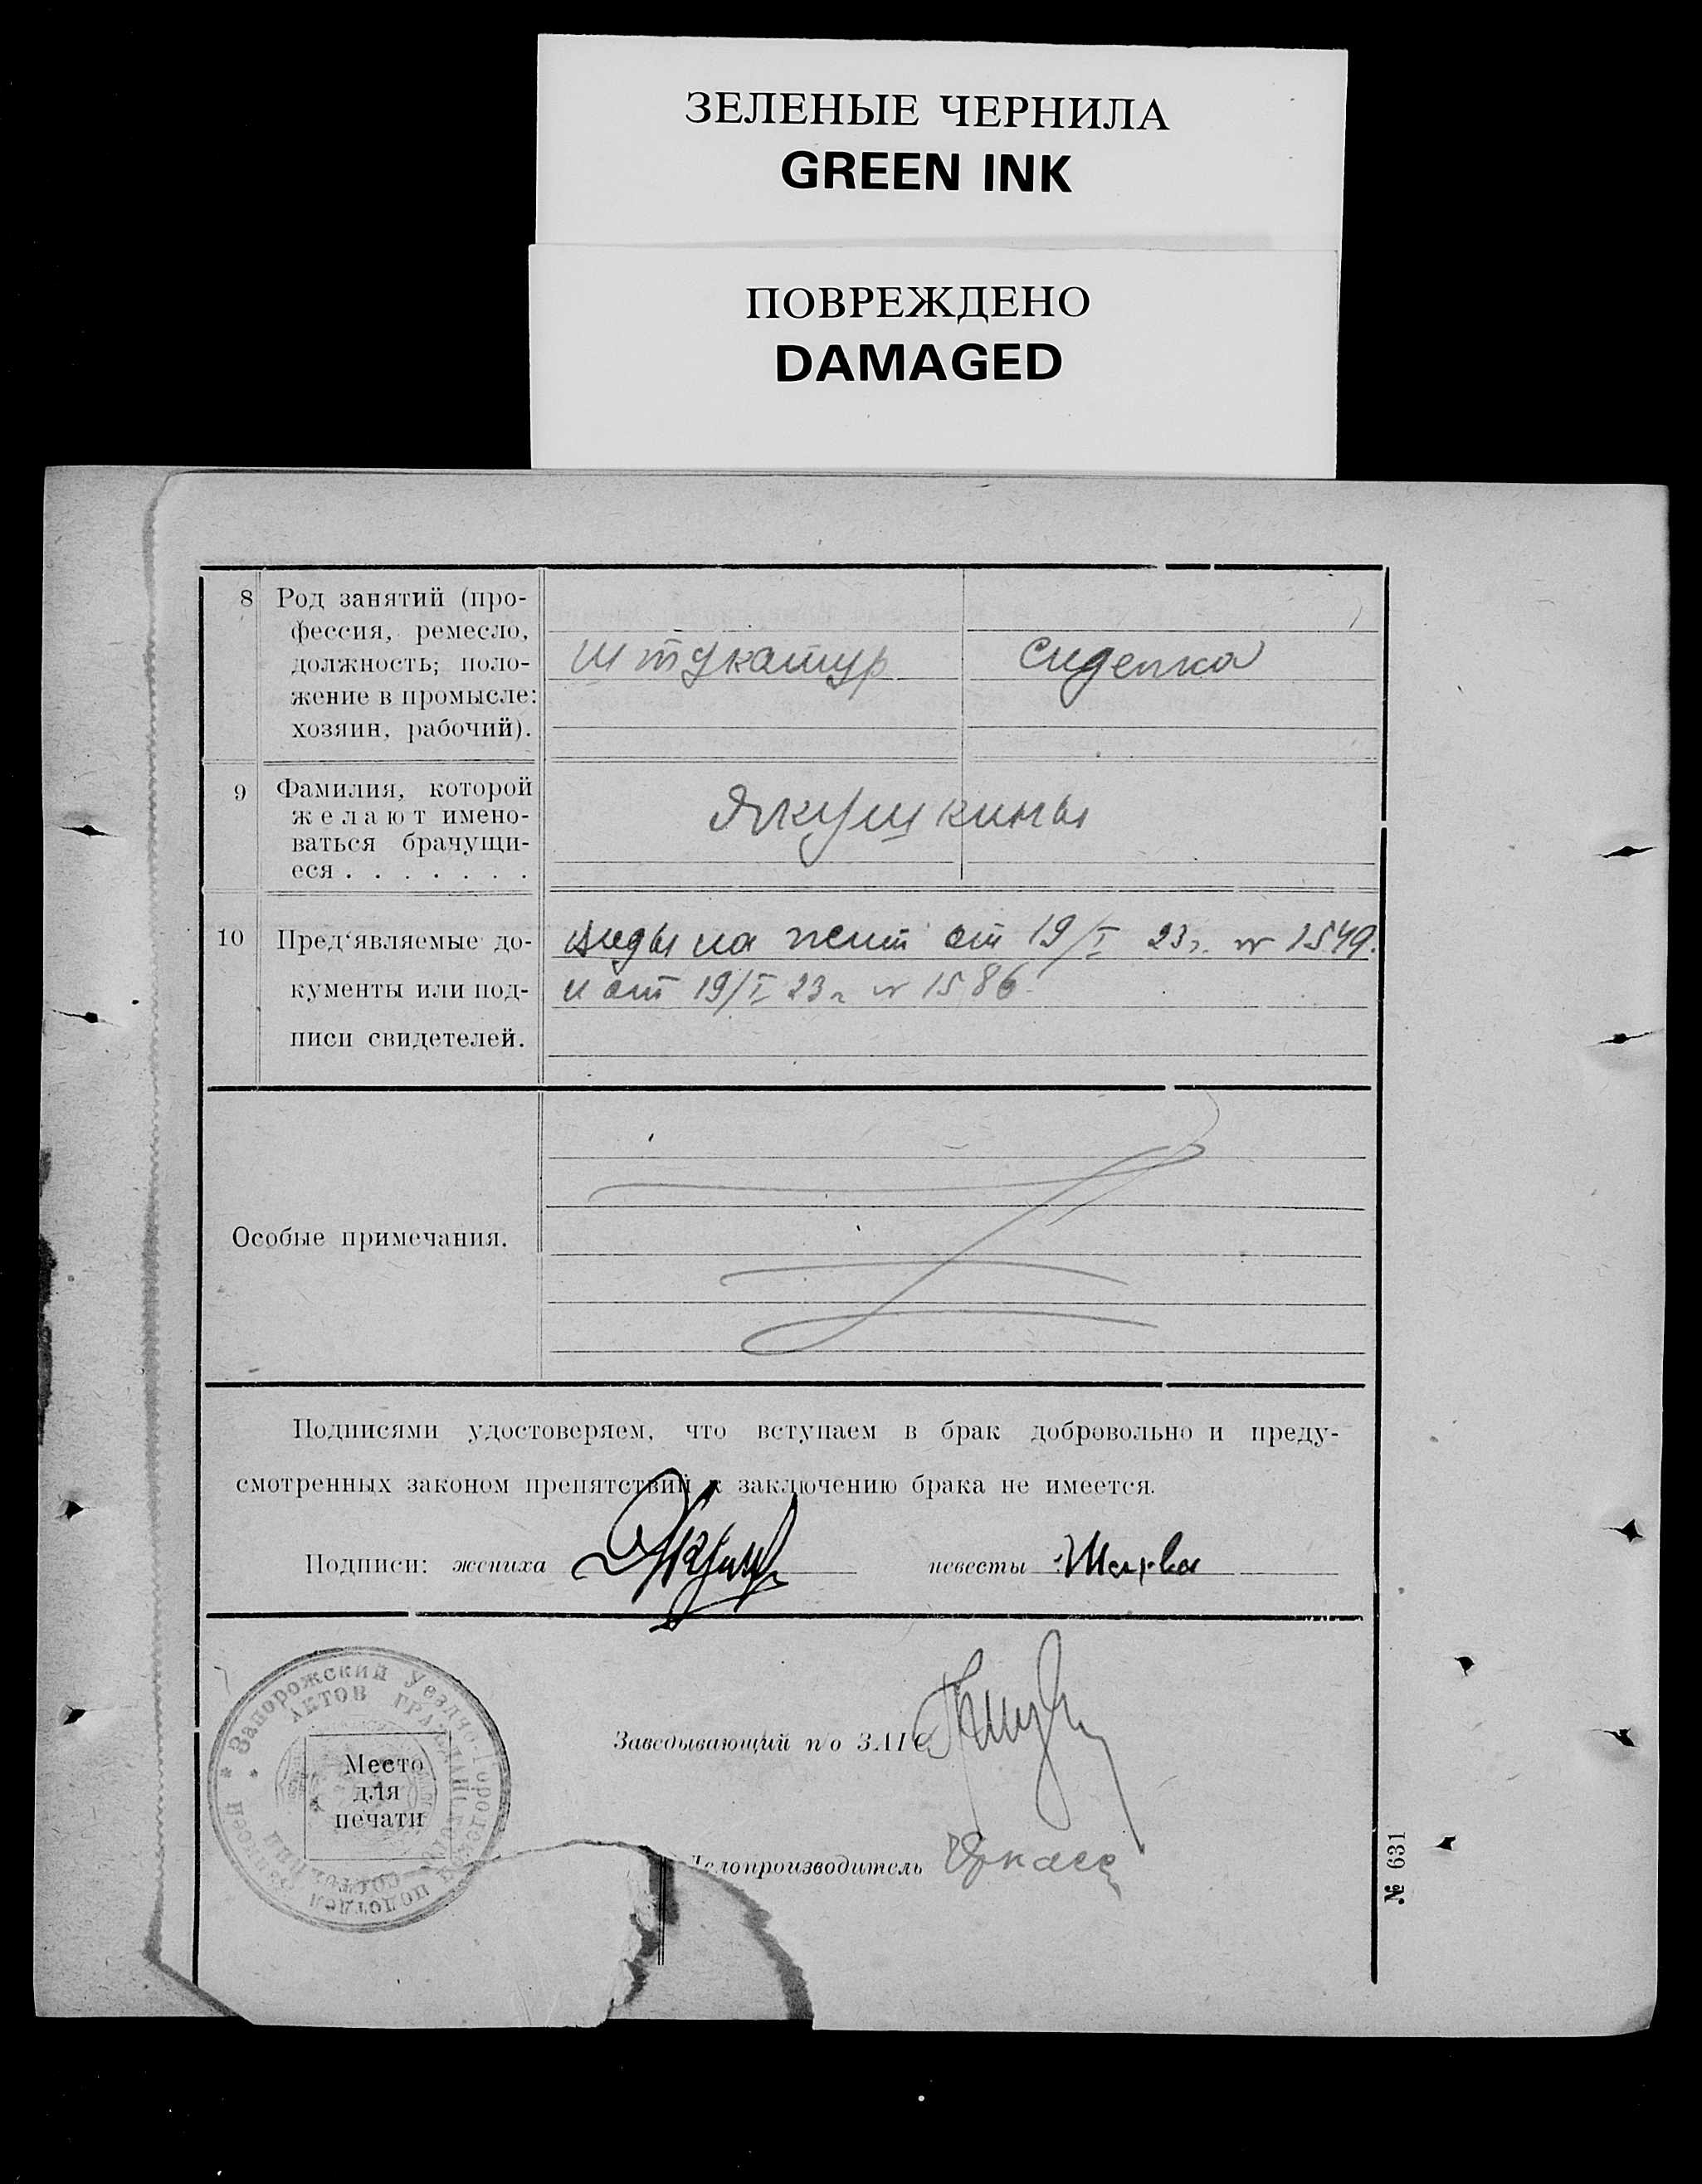 ЗЕЛЕНЫЕ ЧЕРНИЛА
GREEN INK
ПОВРЕЖДЕНО
DAMAGED
8 Род занятий (про-
фессия, ремесло,
должность; поло-
жение в промысле:
хозяин, рабочий).
штукатур
сиделка
9 Фамилия, которой
желают имено-
ваться брачущи-
еся . . . . . . .
Якушкины
10 Пред‘являемые до-
кументы или под-
писи свидетелей.
виды на жит от 19/I 23г. № 1549.
и от 19/I 23г № 1586
Особые примечания.
Подписями удостоверяем, что вступаем в брак добровольно и преду-
смотренных законом препятствий к заключению брака не имеется.
Подписи: жениха
невесты
Запорожский Уездно-Городской подотдел Записей
АКТОВ ГРАЖДАН
Место
для
печати
Заведывающий п/о ЗАГС
Делопроизводитель
№ 631